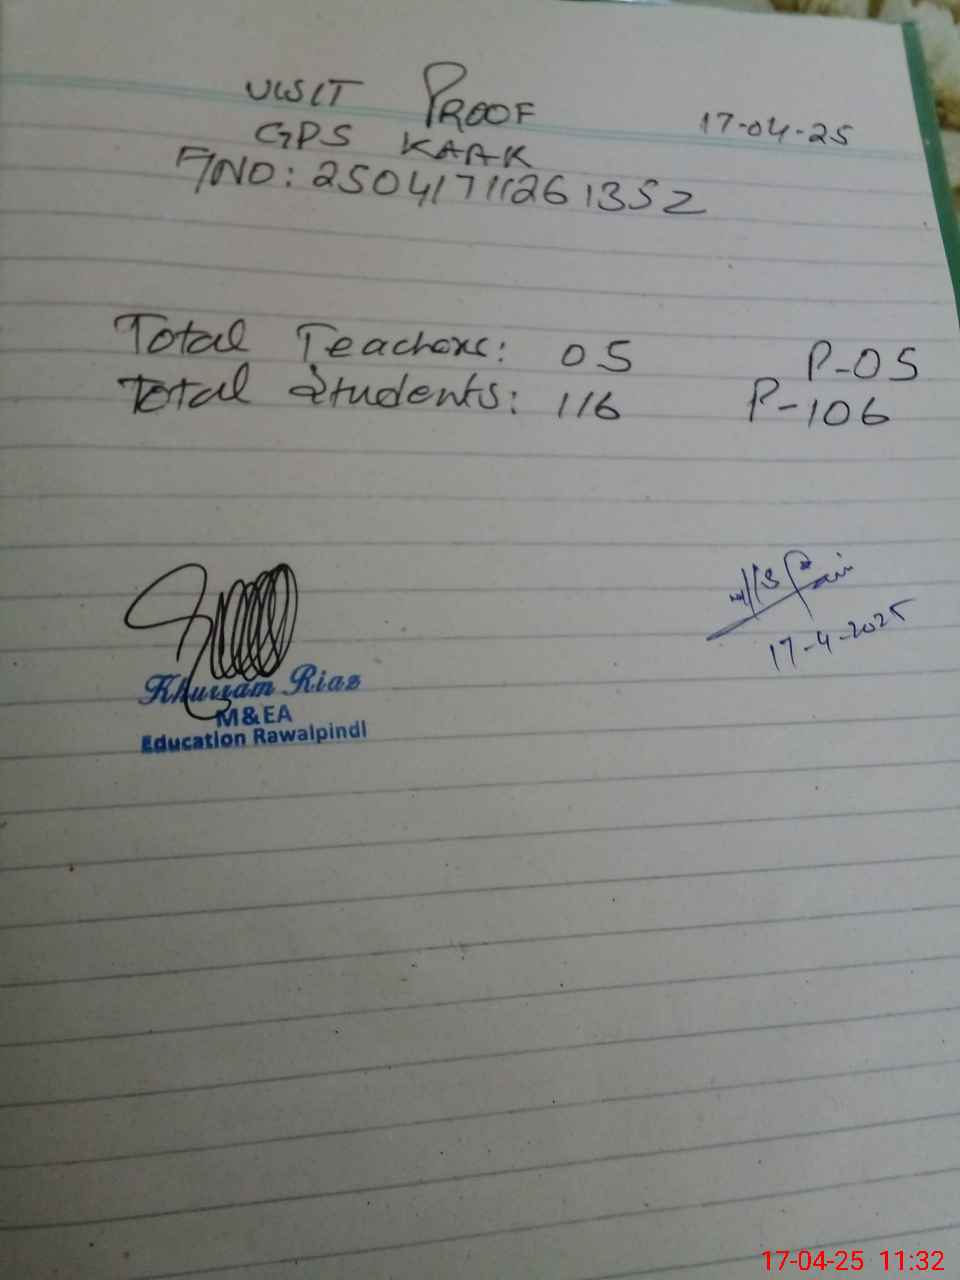 VISIT PROOF 17-04-25
GPS KAAK
F/NO: 25041711261352
Total Teachers: 05 P-05
Total Students: 116 P-106
17-4-2025
Khurram Riaz
M&EA
Education Rawalpindi
17-04-25 11:32